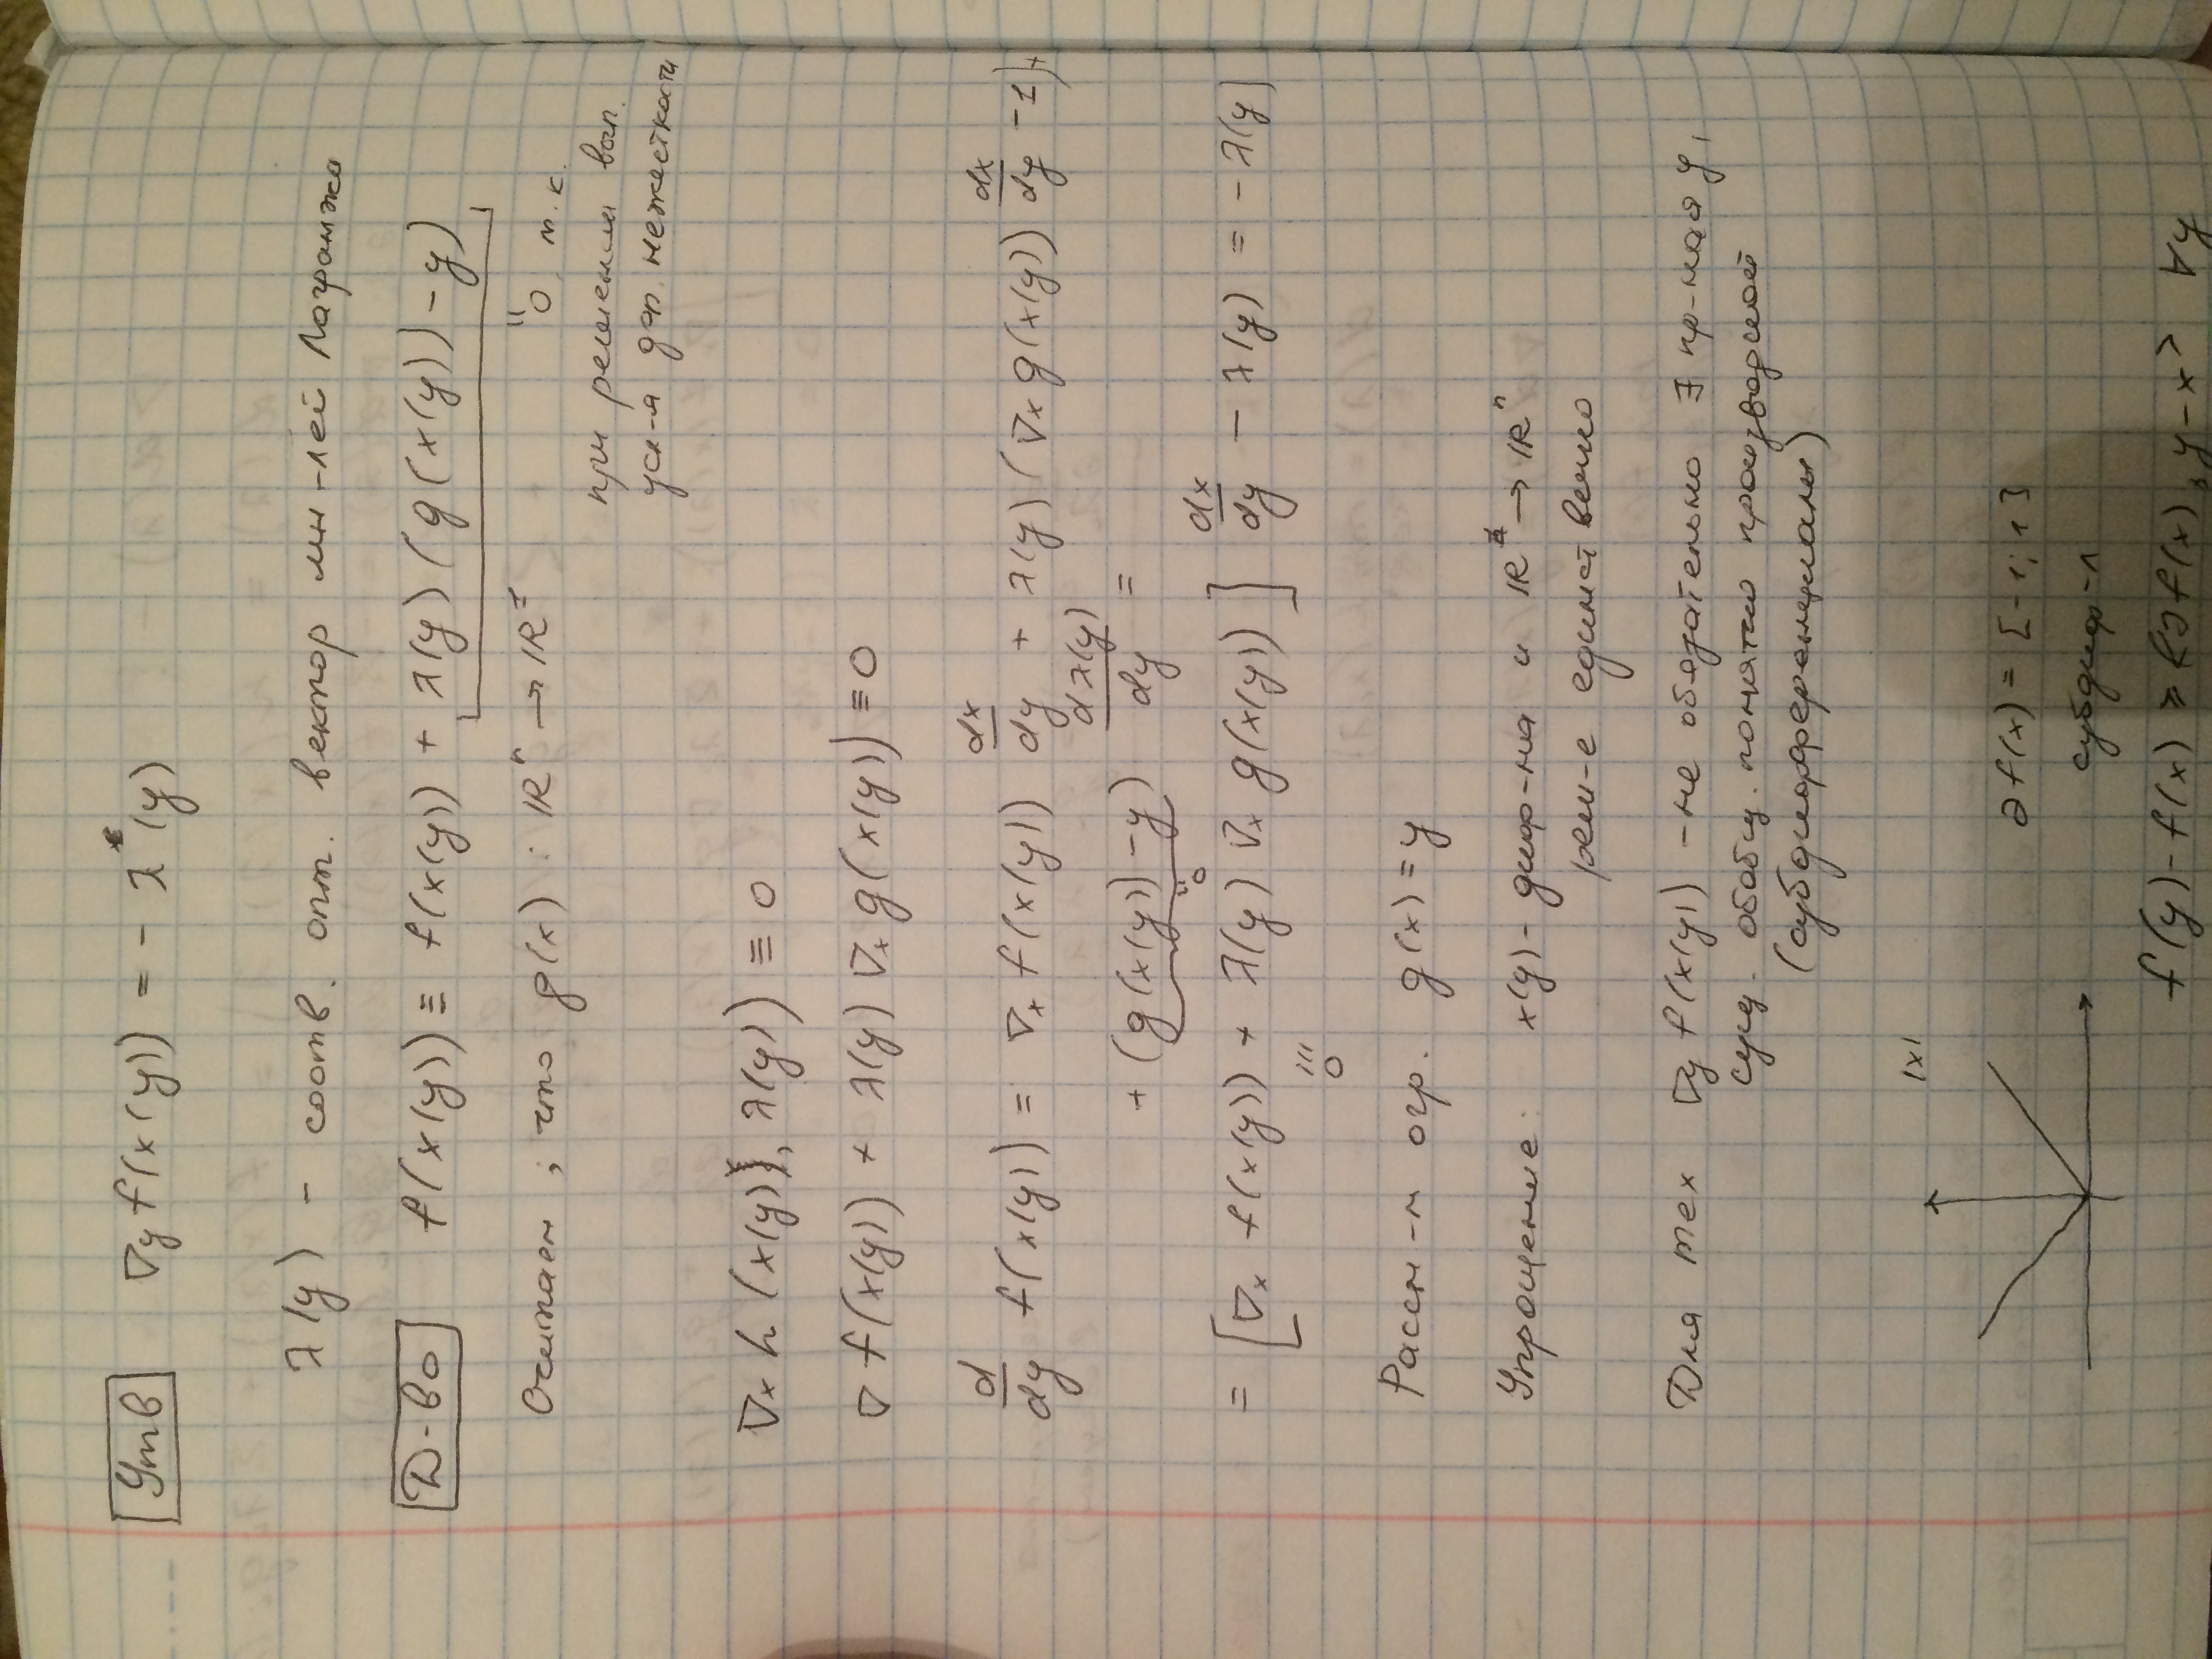 Утв ∇y f(x(y)) = - λ*(y)
λ(y) - соотв. опт. вектор мн-лей Лагранжа
Д-во f(x(y)) ≡ f(x(y)) + λ(y)(g(x(y)) - y)
"0 т.к.
при решении вып.
усл-я доп. нежесткости
Считаем, что g(x) : ℝⁿ → ℝ¹
∇x h(x(y), λ(y)) ≡ 0
∇ f(x(y)) + λ(y) ∇x g(x(y)) ≡ 0
d/dy f(x(y)) = ∇x f(x(y)) dx/dy + λ(y)(∇x g(x(y)) dx/dy - 1) +
+ (g(x(y)) - y) dλ(y)/dy =
"0
= [∇x f(x(y)) + λ(y) ∇x g(x(y))] dx/dy - λ(y) = - λ(y)
≡0
Рассм-м огр. g(x) = y
Упрощение: x(y) - диф-ма и ℝ → ℝⁿ
реш-е единственно
Для тех ∇y f(x(y)) - не обязательно ∃ пр-ная y,
сущ. обобщ. понятие производной
(субдифференциалы)
|x|
∂f(x) = [-1; 1]
субдиф-л
f(y) - f(x) ≥ <∂f(x), y - x> ∀y